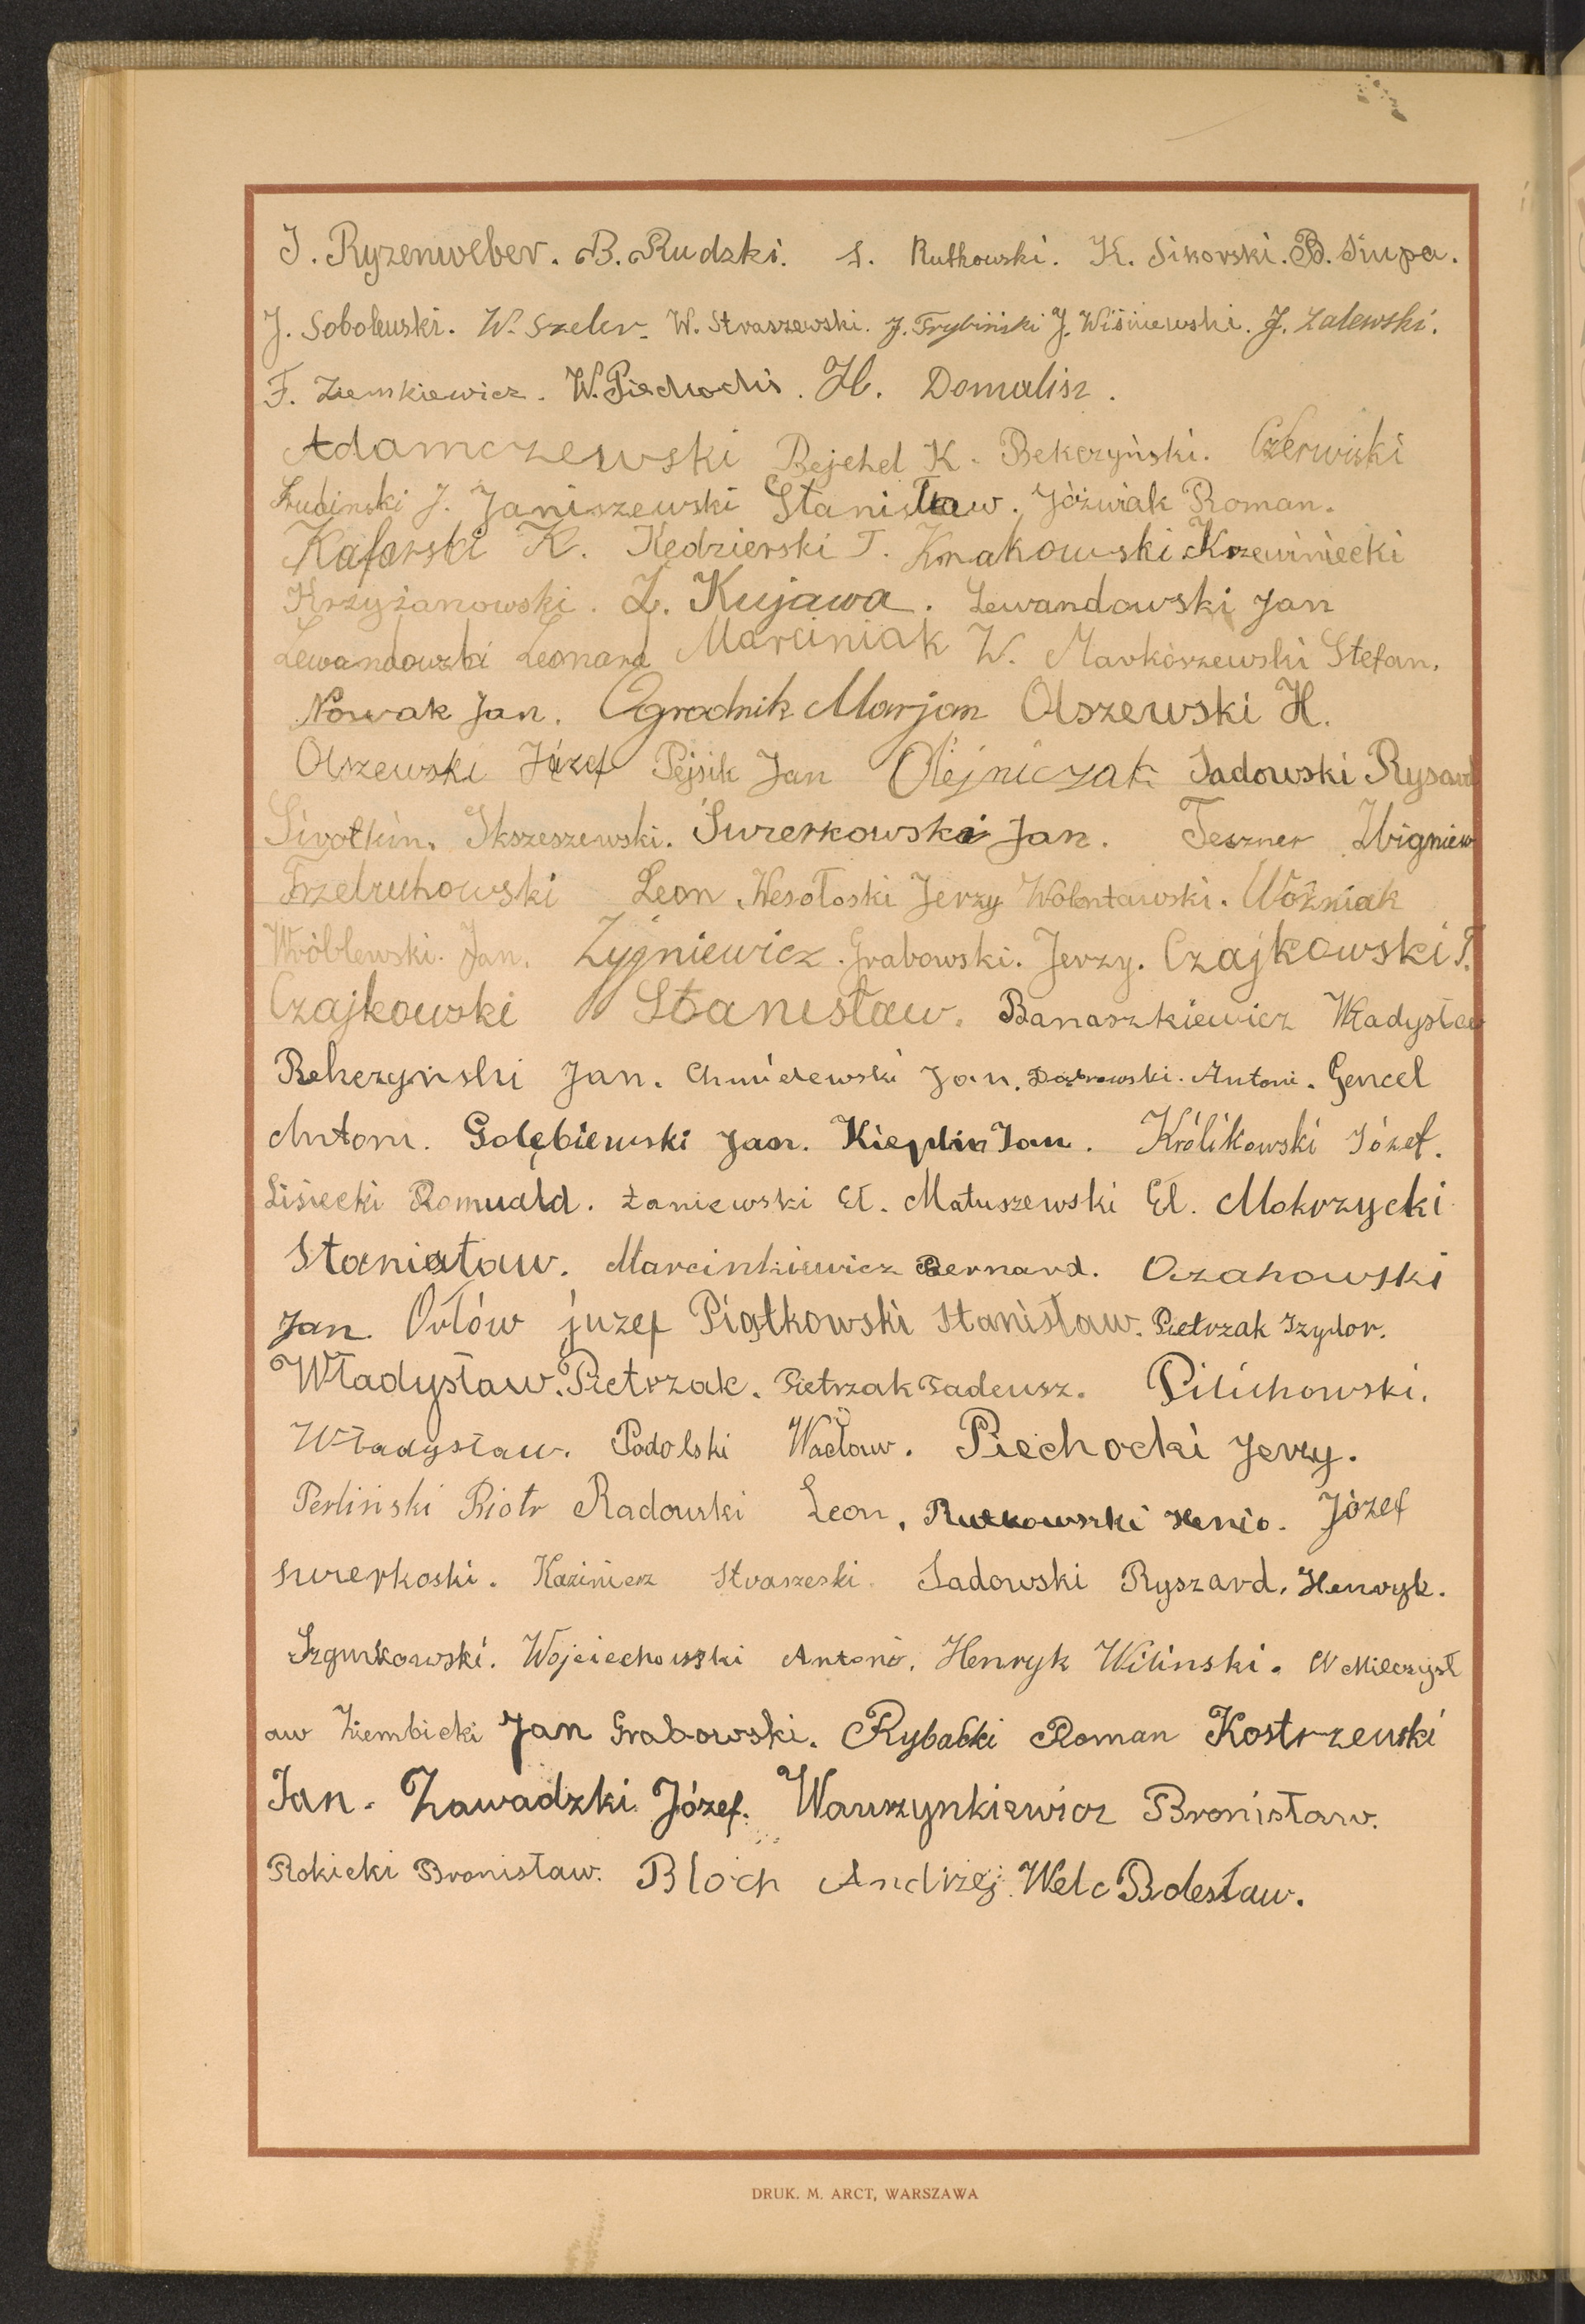 J. Ryzenweber. B. Rudzki. S. Rutkowski. K. Sikorski. B. Siupa.
J. Sobolewski. W. Szeler. W. Straszewski. J. Trybiński J. Wiśniewski. J. Zalewski.
F. Ziemkiewicz. W. Piechocki. H. Domalisz.
Adamczewski Bejehel K. Bekczyński. Czerwiski
J. Janiszewski Stanisław. Jóźwiak Roman.
Kafarski K. Kędzierski T. Krakowski Krzewiniecki
Krzyżanowski. Z. Kujawa. Lewandowski Jan
Lewandowski Leonard Marciniak W. Markorzewski Stefan.
Nowak Jan. Ogrodnik Marjan Olszewski H.
Olszewski Józef Pejsik Jan Olejniczak Sadowski Rysard
Sivotkin. Skszeszewski. Swierkowski Jan. Teszner Zbigniew
Leon Wesołoski Jerzy Wolentawski. Woźniak
Wróblewski. Jan. Zygniewicz. Grabowski. Jerzy. Czajkowski T.
Czajkowski Stanisław. Banaszkiewicz Władysław
Rekczynski Jan. Chmielewski Jan. Dąbrowski. Antoni. Gencel
Antoni. Gołębiewski Jan. Kieplin Jan. Królikowski Józef.
Lisiecki Romuald. Łaniewski El. Matuszewski El. Mokrzycki
Stanisław. Marcinkiewicz Bernard. Ozahowski
Jan. Orłów juzef Piątkowski Stanisław. Pietrzak Izydor.
Władysław. Pietrzak. Pietrzak Tadeusz. Pilichowski.
Władysław. Podolski Wacław. Piechocki Jerzy.
Perliński Piotr Radowski Leon. Rutkowski Henio. Józef
Swierkoski. Kazimierz Straszeski. Sadowski Ryszard. Henryk.
Szgurkowski. Wojciechowski Antoni. Henryk Wilinski. W Mieczysł
aw Ziembicki Jan Grabowski. Rybacki Roman Kostrzewski
Jan. Zawadzki Józef. Wawrzynkiewicz Bronisław.
Rokicki Bronisław. Bloch Andrzej. Welc Bolesław.
DRUK. M. ARCT, WARSZAWA